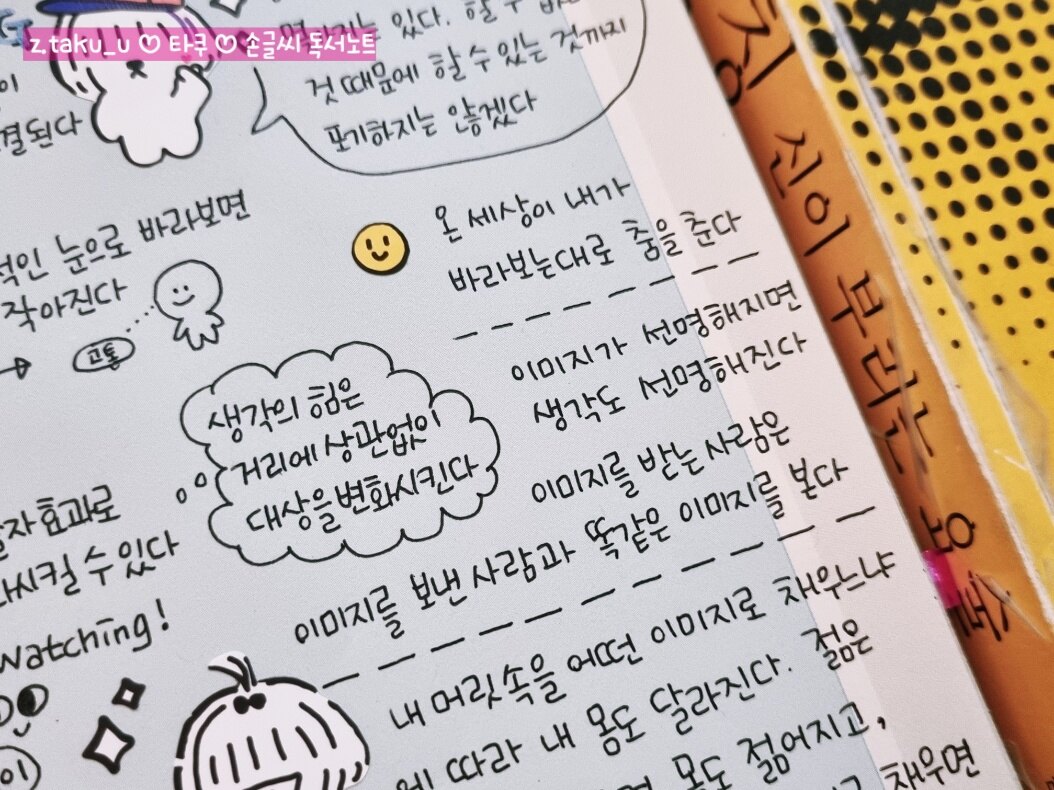 z.taku_u ♡ 타쿠 ♡ 손글씨 독서노트
있다. 할 수
것 때문에 할 수 있는 것까지
포기하지는 않겠다
결된다
눈으로 바라보면
작아진다
고통
온 세상이 내가
바라보는대로 춤을 춘다
이미지가 선명해지면
생각도 선명해진다
생각의 힘은
거리에 상관없이
대상을 변화시킨다
이미지를 받는 사람은
이미지를 보낸 사람과 똑같은 이미지를 본다
효과로
시킬 수 있다
watching!
내 머릿속을 어떤 이미지로 채우느냐
에 따라 내 몸도 달라진다. 젊은
몸도 젊어지고,
채우면
신이 부리는 요술